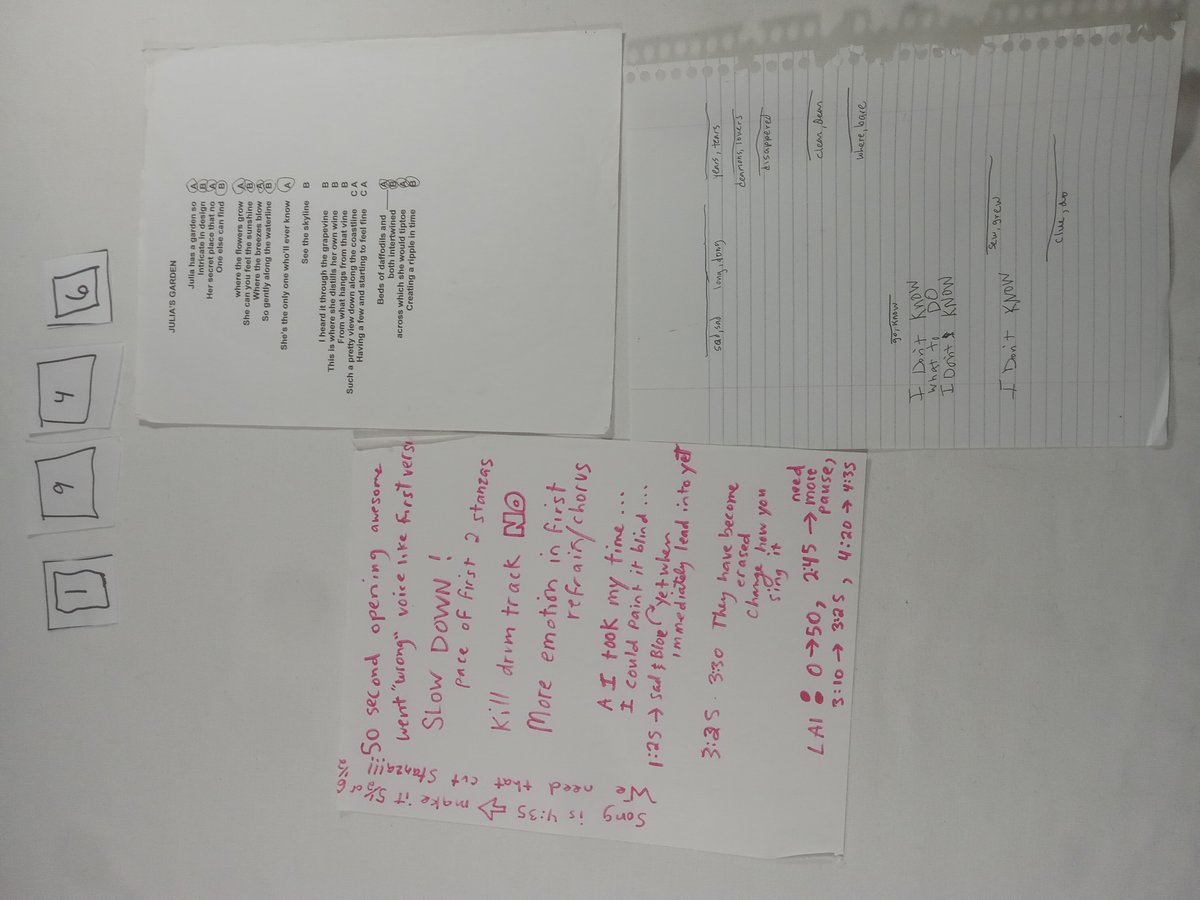 1
9
4
6
JULIA'S GARDEN
Julia has a garden so A
Intricate in design B
Her secret place that no A
One else can find B
where the flowers grow A
She can you feel the sunshine B
Where the breezes blow A
So gently along the waterline B
She's the only one who'll ever know A
See the skyline B
I heard it through the grapevine B
This is where she distills her own wine B
From what hangs from that vine B
Such a pretty view down along the coastline C A
Having a few and starting to feel fine C A
Beds of daffodils and A
both intertwined B
across which she would tiptoe A
Creating a ripple in time B
:50 second opening awesome
went "wrong" voice like first
SLOW DOWN!
pace of first 2 stanzas
Kill drum track NO
More emotion in first
refrain/chorus
A I took my time...
I could paint it blind...
1:25 → sad & Blue yet when
immediately lead into yet
3:25 - 3:30 They have become
erased
Change how you
sing it
LAI: 0→50, 2:45 → need
more
pause,
3:10 → 3:25, 4:20 → 4:35
Song is 4:35 ⇨ make it 5½ or 6
We need that cut stanza!!!
sad, sad long, dong years, tears
demons, lovers
disappered
clean,
where, bare
go, know
I Don't KNOW
What to DO
I Don't KNOW
sew, grew
I Don't KNOW
clue, do